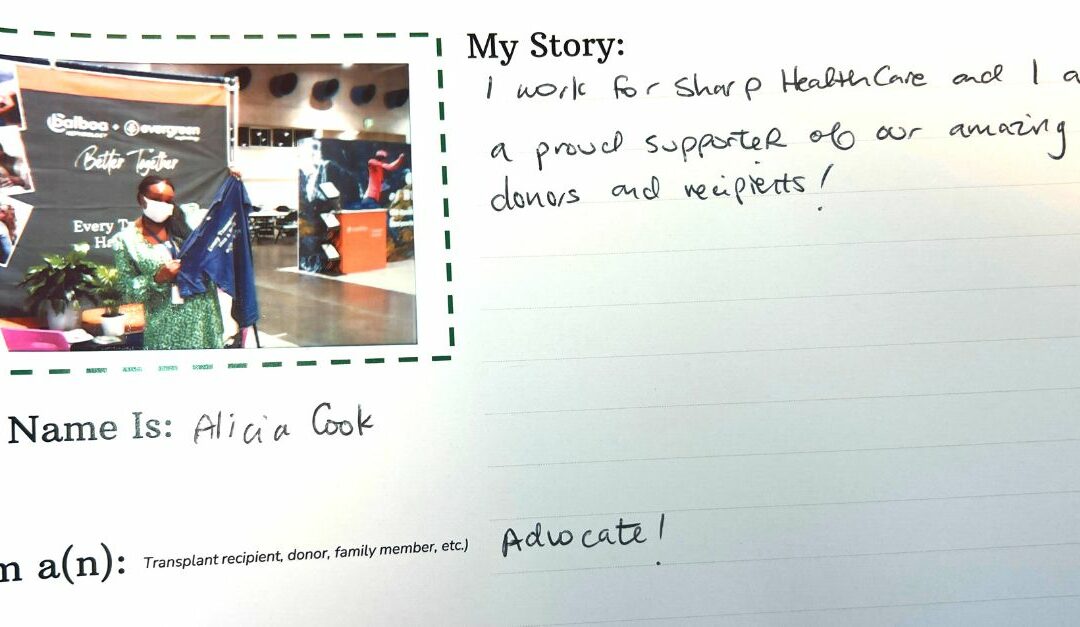 My Story:
I work for Sharp HealthCare and I a
a proud supporter of our amazing
donors and recipients!
Balboa + evergreen
Better Together
Every T
Ha
Name Is: Alicia Cook
m a(n): Transplant recipient, donor, family member, etc.) Advocate!